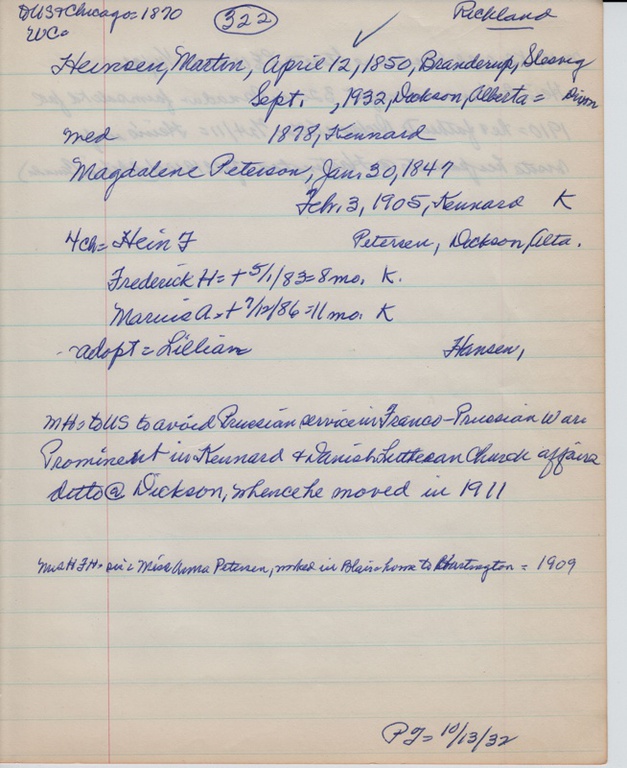 DUS&Chicago=1870 (322) Richland
WCo
Heinsen, Martin, April 12, 1850, Branderup, Slesvig
Sept. , 1932, Dickson, Alberta =
med 1878, Kennard
Magdalene Peterson, Jan. 30, 1847
Feb. 3, 1905, Kennard K
4ch= Hein F Petersen, Dickson, Alta.
Frederick H= + 5/1/83=8mo. K.
Marius A= + 7/12/86=11mo. K
adopt = Lillian Hansen,
MH=to US to avoid Prussian service in Franco-Prussian War
Prominent in Kennard & Danish Lutheran Church affairs
ditto @ Dickson, whence he moved in 1911
Mrs H FH= Miss Anna Petersen, worked in Blair=home to = 1909
PT= 10/13/32